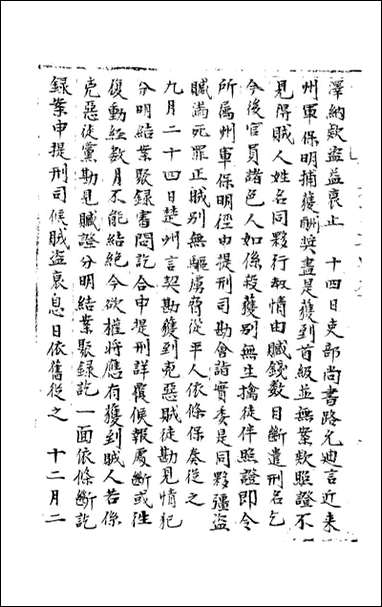 澤納欵盜益衰止　十四日吏部尚書路允迪言近来
州軍保明捕獲酬奬盡是獲到首級並無案欵照證不
見得賊人姓名同夥行刼情由贓錢數目斷遣刑名乞
今後官員諸色人如係殺獲別無生擒徒伴照證即令
所屬州軍保明徑申提刑司勘會詣實委是同夥彊盜
贓滿死罪正賊别無驅虜脅從平人依條保奏從之
九月二十四日楚州言契勘獲到兇惡賊徒勘見情犯
分明結案聚録書問訖合申提刑詳覆候報處斷或往
復動經数月不能結絶今欲權将應有獲到賊人若係
兇惡徒黨勘見贓證分明結案聚録訖一面依條斷訖
録案申提刑司候賊盜衰息日依舊從之　十二月二